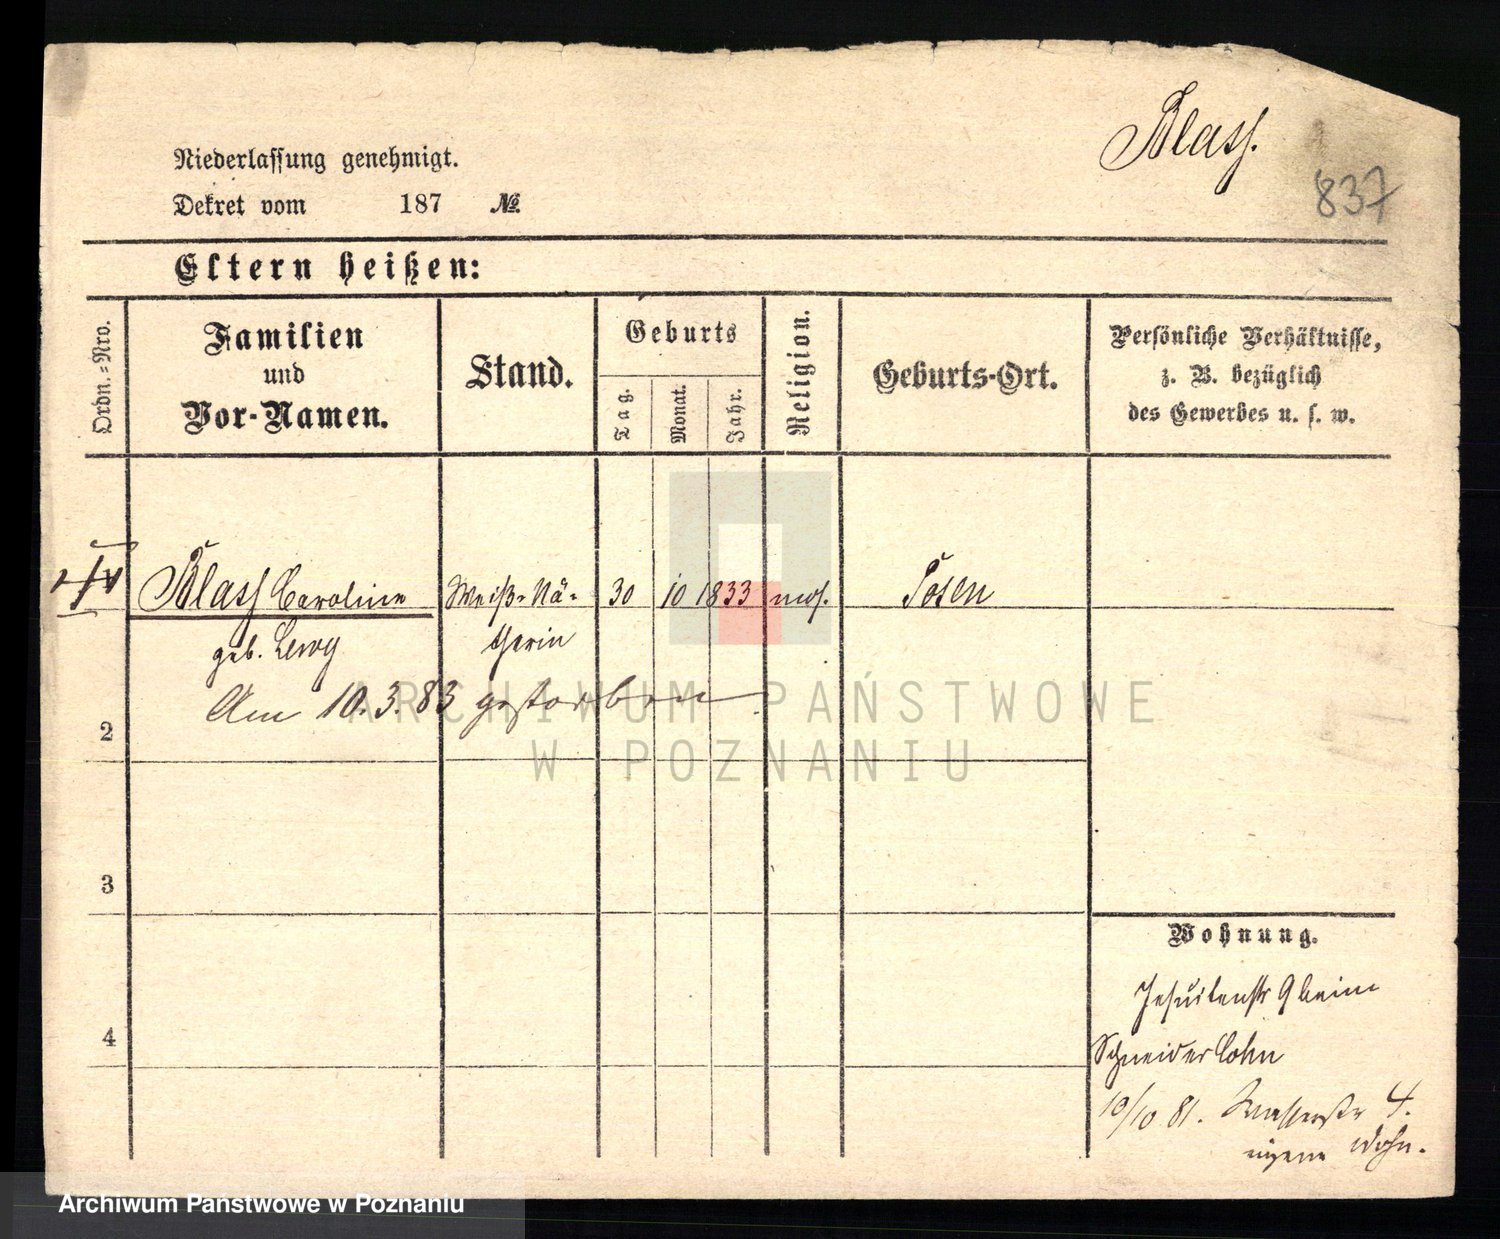 Blass.
837
Niederlassung genehmigt.
Dekret vom 187 №
Eltern heißen:
Ordn.=Nro.
Familien
und
Vor-Namen.
Stand.
Geburts
Tag.
Monat.
Jahr.
Religion.
Geburts-Ort.
Persönliche Verhältnisse,
z. B. bezüglich
des Gewerbes u. s. w.
Blass Caroline Weiß-Nä- 30 10 1833 mos. Posen
geb. Lewy therin
Am 10.3.83 gestorben
2
3
4
ARCHIWUM PAŃSTWOWE
W POZNANIU
Wohnung.
Jesuitenstr 9 beim
Schneider Cohn
10/10 81. Wasserstr 4.
eigene Wohn.
Archiwum Państwowe w Poznaniu